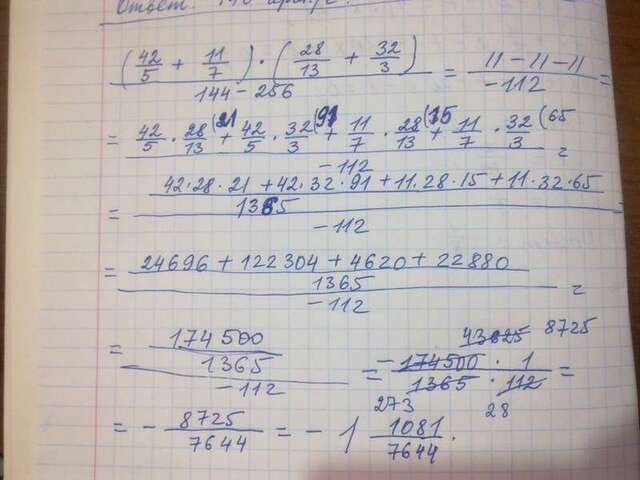 Ответ:
(42/5 + 11/7) · (28/13 + 32/3) / 144 - 256 = 11 - 11 - 11 / -112 =
= 42/5 · 28/13 (21 + 42/5 · 32/3 (91 + 11/7 · 28/13 (15 + 11/7 · 32/3 (65 / -112 =
= 42·28·21 + 42·32·91 + 11·28·15 + 11·32·65 / 1365 / -112
= 24696 + 122304 + 4620 + 22880 / 1365 / -112 =
= 174500 / 1365 / -112 = - 174500 · 1 / 1365 · 112 =
43625 8725
273 28
= - 8725/7644 = - 1 1081/7644 .